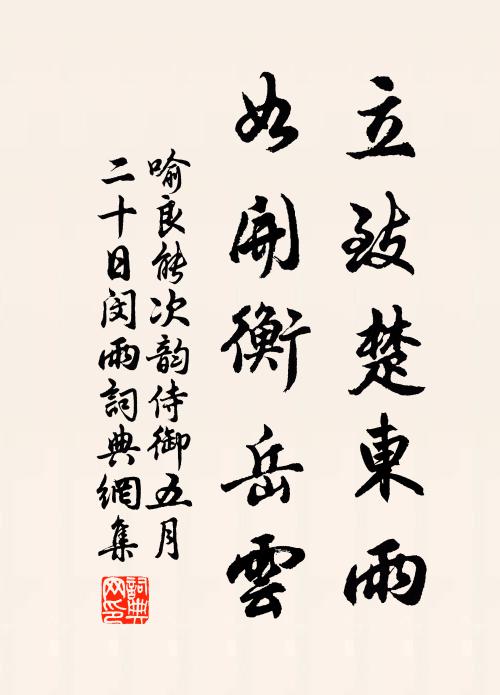 立致楚東雨
如開衡岳雲
喻良能次韵侍御五月
二十日闵雨詞典網集
詞典
网印